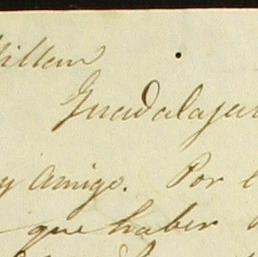 Guadalajar
y Amigo. Por l
que haber